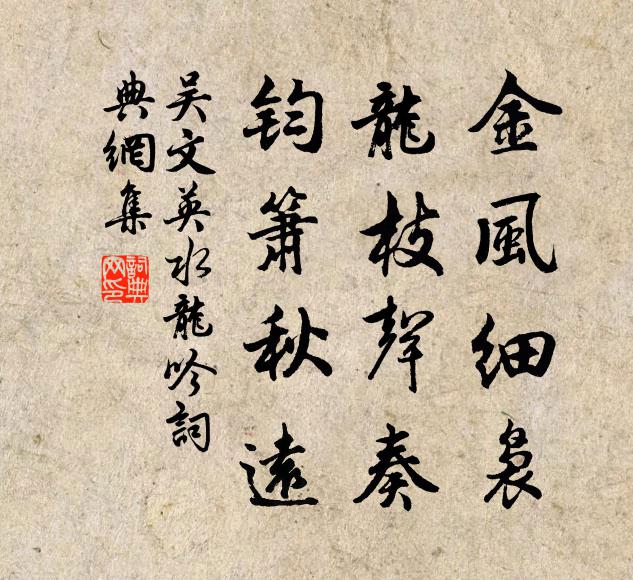 金風細裊
龍枝聲奏
鈞簫秋遠
吳文英水龍吟詞
典網集
詞典
网印